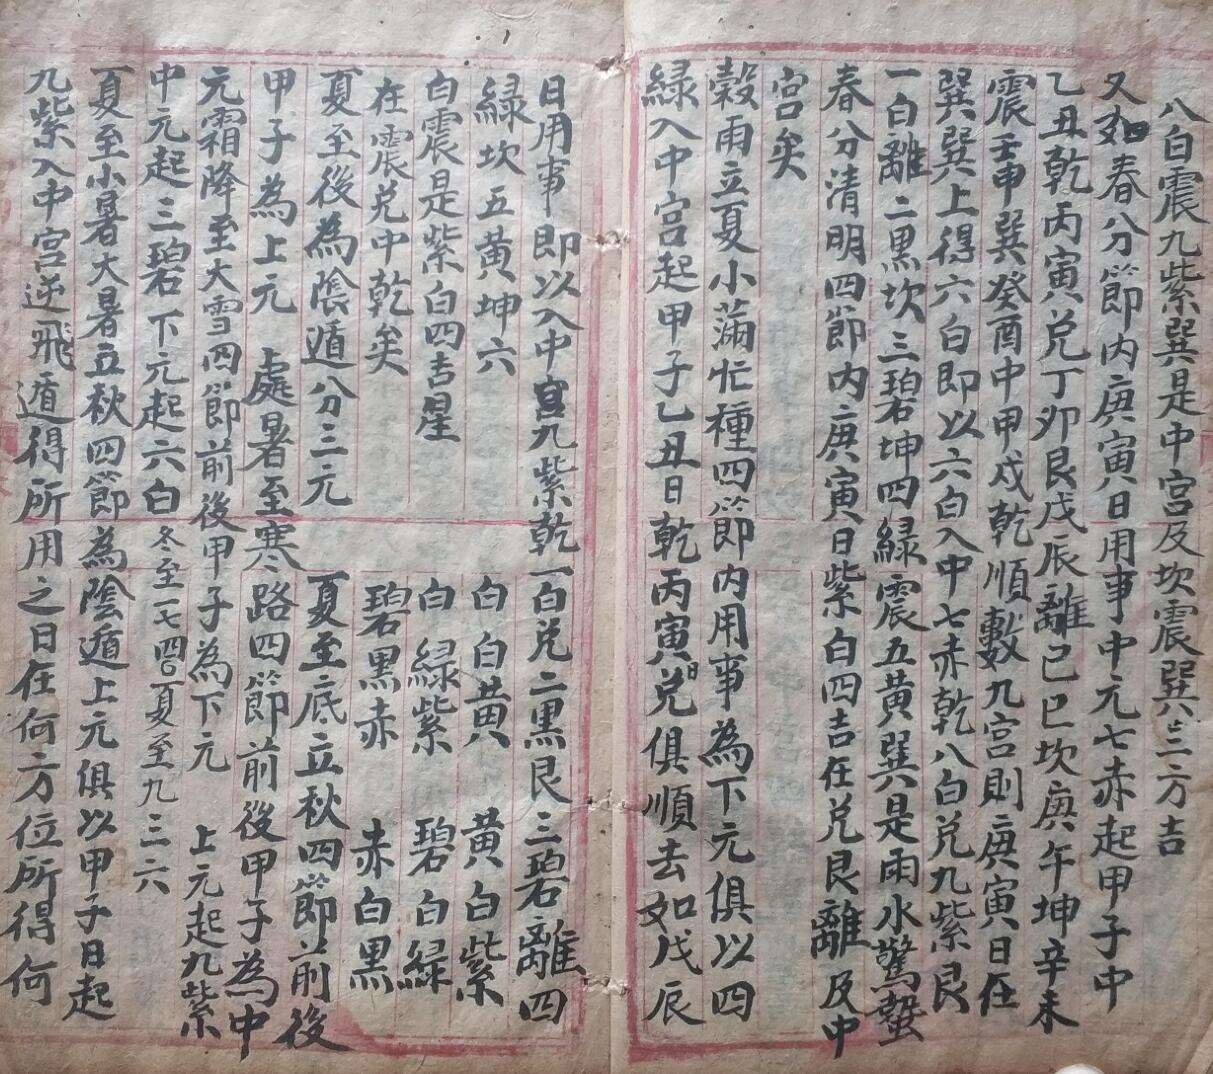 八白震九紫巽是中宮及坎震巽三方吉
又如春分節内庚寅日用事中元七赤起甲子中
乙丑乾丙寅兑丁卯艮戊辰離己巳坎庚午坤辛未
震壬申巽癸酉中甲戌乾順數九宮則庚寅日在
巽巽上得六白即以六白入中七赤乾八白兑九紫艮
一白離二黑坎三碧坤四緑震五黄巽是雨水驚蟄
春分清明四節内庚寅日紫白四吉在兑艮離及中
宮矣
穀雨立夏小滿忙種四節内用事為下元俱以四
緑入中宮起甲子乙丑日乾丙寅日兑俱順去如戊辰
日用事即以入中宮九紫乾一白兑二黑艮三碧離四
緑坎五黄坤六
白震是紫白四吉星
在震兑中乾矣
白白黄 黄白紫
白緑紫 碧白緑
碧黑赤 赤白黑
夏至後為隂遁分三元
夏至底立秋四節前後
甲子為上元 處暑至寒路四節前後甲子為中
元霜降至大雪四節前後甲子為下元 上元起九紫
中元起三碧下元起六白 冬至一七四 夏至九三六
夏至小暑大暑立秋四節為隂遁上元俱以甲子日起
九紫入中宮逆飛遁得所用之日在何方位所得何